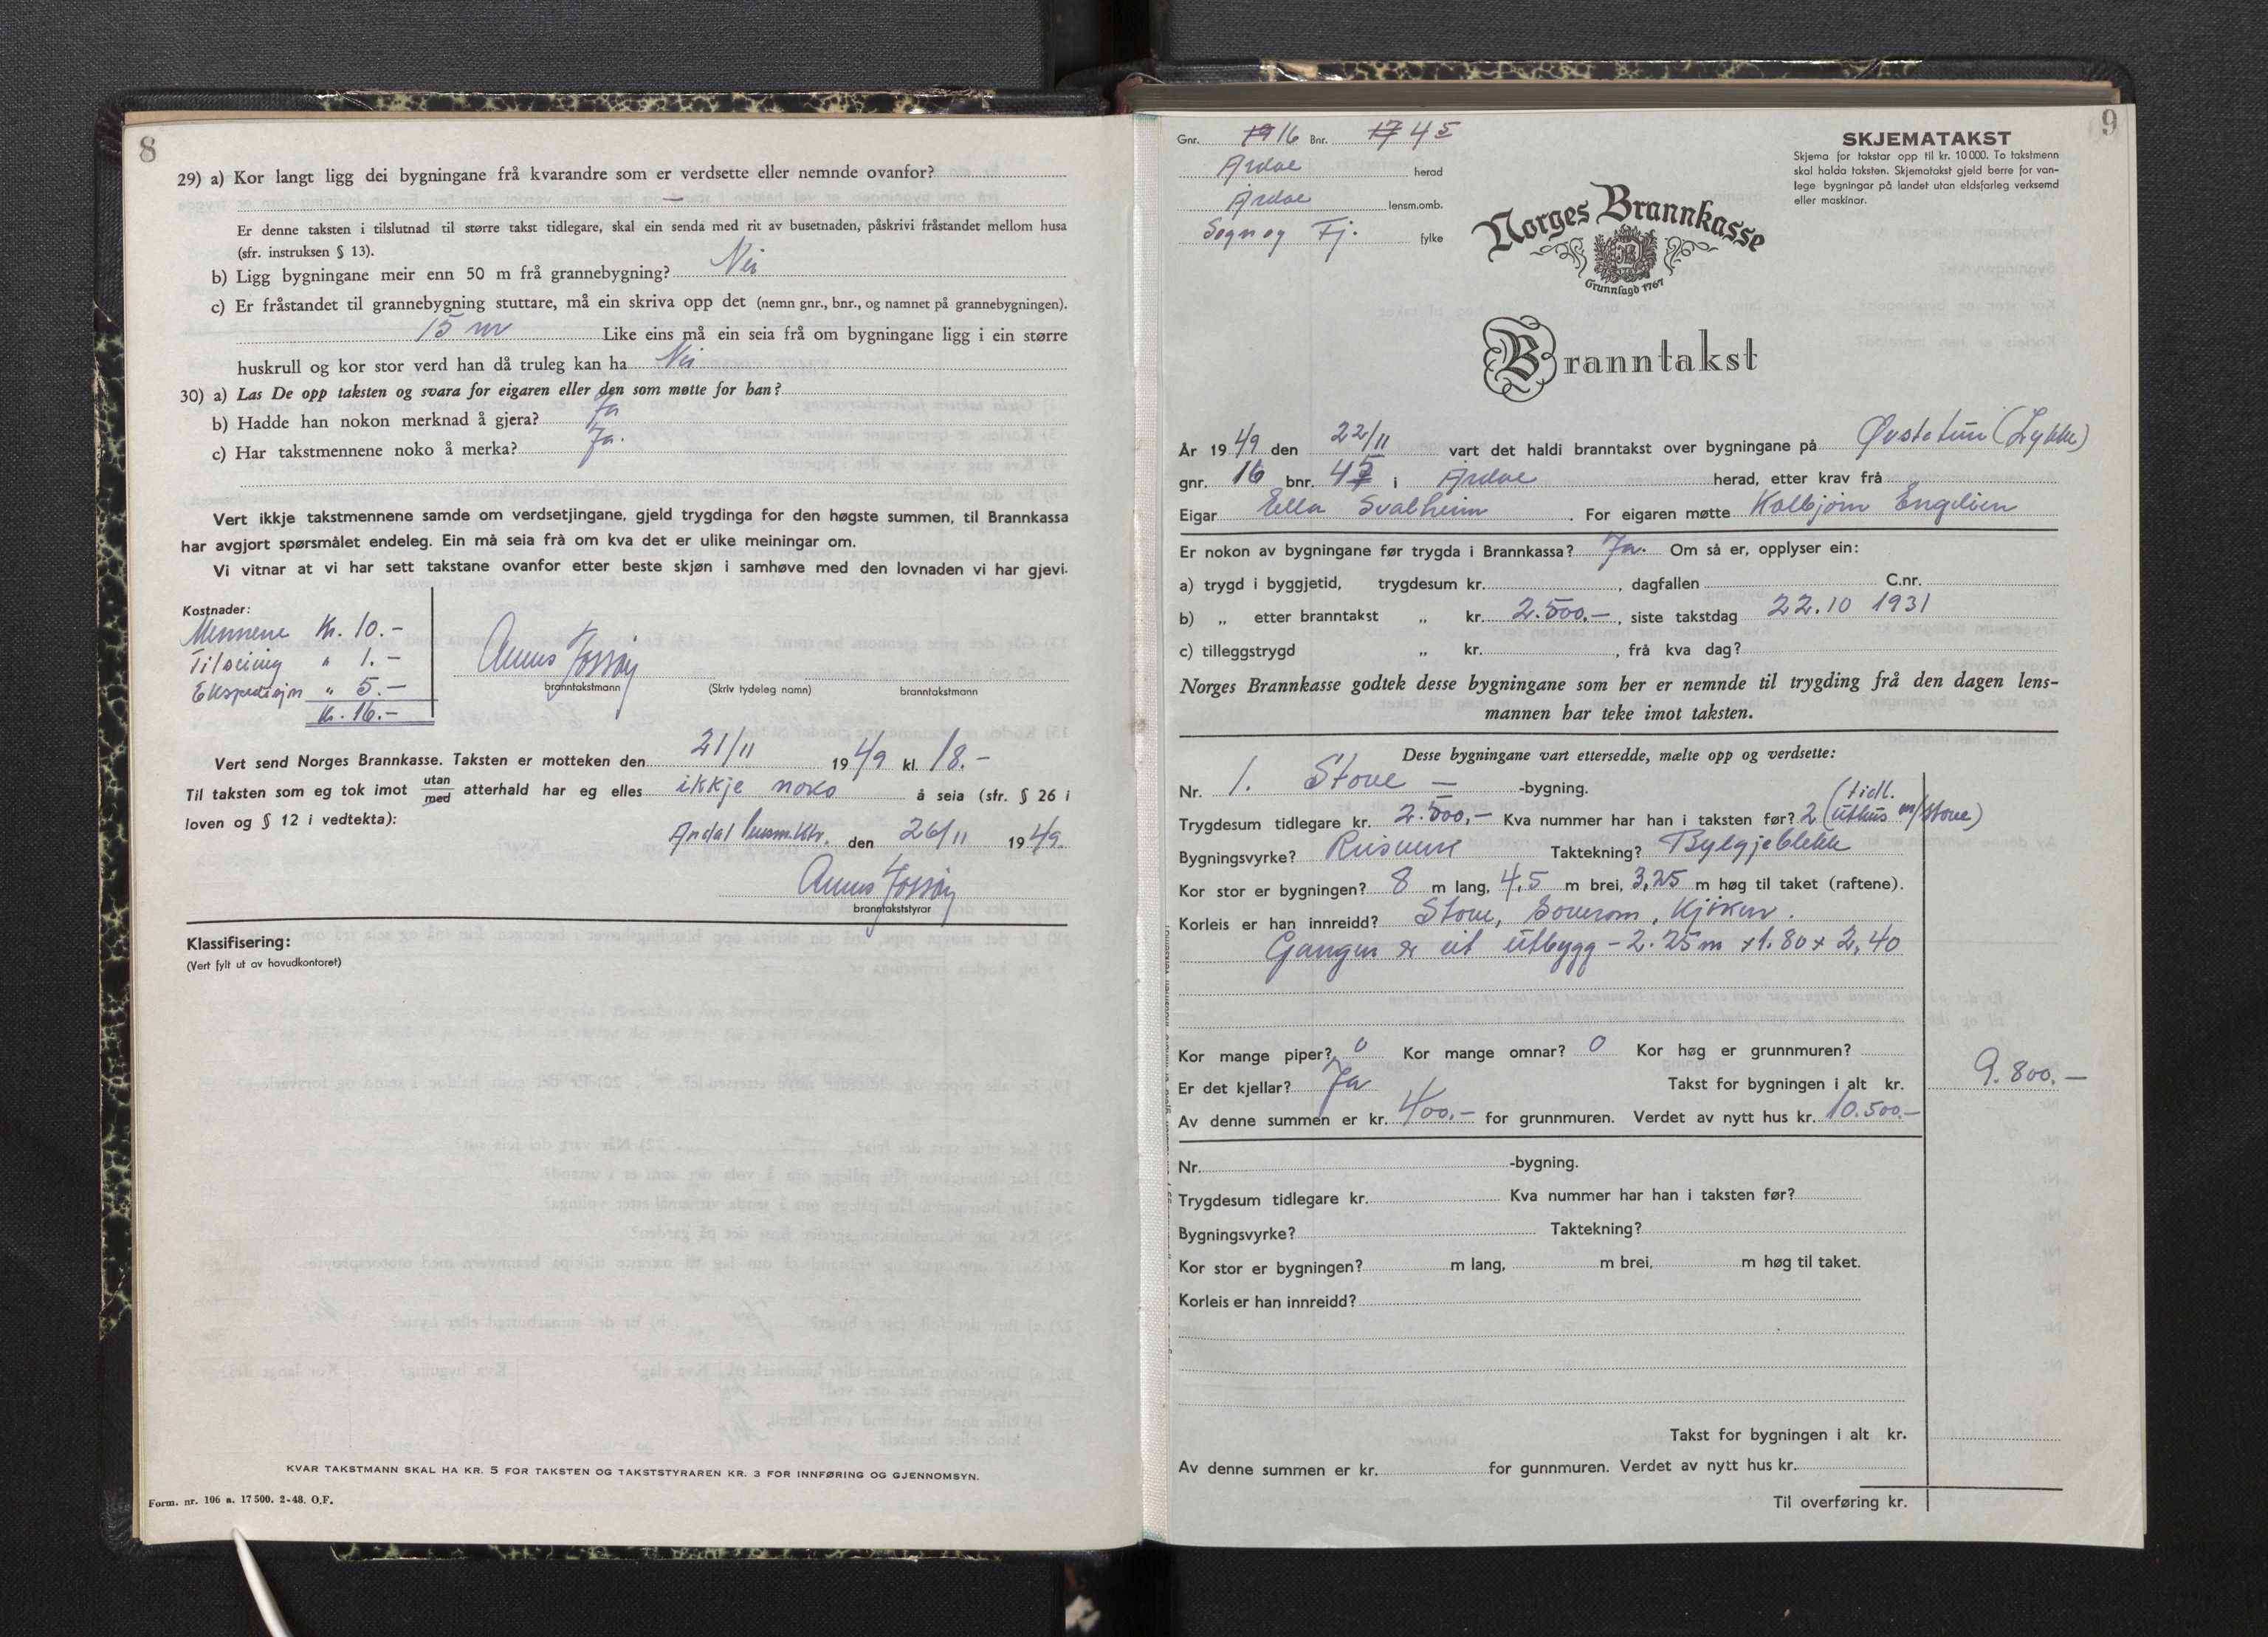 8
29) a) Kor langt ligg dei bygningane frå kvarandre som er verdsette eller nemnde ovanfor?
—
Er denne taksten i tilslutnad til større takst tidlegare, skal ein senda med rit av busetnaden, påskrivi fråstandet mellom husa
(sfr. instruksen § 13).
b) Ligg bygningane meir enn 50 m frå grannebygning? Nei
c) Er fråstandet til grannebygning stuttare, må ein skriva opp det (nemn gnr., bnr., og namnet på grannebygningen).
15 m Like eins må ein seia frå om bygningane ligg i ein større
huskrull og kor stor verd han då truleg kan ha Nei
30) a) Las De opp taksten og svara for eigaren eller den som møtte for han?
b) Hadde han nokon merknad å gjera? Ja
c) Har takstmennene noko å merka? Ja.
Vert ikkje takstmennene samde om verdsetjingane, gjeld trygdinga for den høgste summen, til Brannkassa
har avgjort spørsmålet endeleg. Ein må seia frå om kva det er ulike meiningar om.
Vi vitnar at vi har sett takstane ovanfor etter beste skjøn i samhøve med den lovnaden vi har gjevi.
Kostnader:
Mennene Kr. 10.-
Tilseing " 1.-
Ekspedisjon " 5.-
Kr. 16.-
branntakstmann (Skriv tydeleg namn) branntakstmann
Vert send Norges Brannkasse. Taksten er motteken den 21/11 1949 kl. 18.-
Til taksten som eg tok imot utan med atterhald har eg elles ikkje noko å seia (sfr. § 26 i
loven og § 12 i vedtekta):
Årdal lensm.ktr. den 26/11 1949.
branntakststyrar
Klassifisering:
(Vert fylt ut av hovudkontoret)
KVAR TAKSTMANN SKAL HA KR. 5 FOR TAKSTEN OG TAKSTSTYRAREN KR. 3 FOR INNFØRING OG GJENNOMSYN.
Form. nr. 106 a. 17 500. 2-48. O.F.
9
Gnr. 19 16 Bnr. 17 45
Årdal herad
Årdal lensm.omb.
Sogn og Fj. fylke
SKJEMATAKST
Skjema for takstar opp til kr. 10 000. To takstmenn
skal halda taksten. Skjematakst gjeld berre for van-
lege bygningar på landet utan eldsfarleg verksemd
eller maskinar.
Norges Brannkasse
Grunnlagd 1767
Branntakst
År 1949 den 22/11 vart det haldi branntakst over bygningane på Øvstetun (Lykke)
gnr. 16 bnr. 45 i Årdal herad, etter krav frå
Eigar Ella Svalheim. For eigaren møtte Kolbjørn Engelien
Er nokon av bygningane før trygda i Brannkassa? Ja. Om så er, opplyser ein:
a) trygd i byggjetid, trygdesum kr. , dagfallen C.nr.
b) „ etter branntakst „ kr. 2.500.-, siste takstdag 22.10 1931
c) tilleggstrygd „ kr. , frå kva dag?
Norges Brannkasse godtek desse bygningane som her er nemnde til trygding frå den dagen lens-
mannen har teke imot taksten.
Desse bygningane vart ettersedde, mælte opp og verdsette:
Nr. 1. Stove — -bygning.
Trygdesum tidlegare kr. 2.500,- Kva nummer har han i taksten før? 2 (tidl. uthus m/stove)
Bygningsvyrke? Reisverk Taktekning? Bylgjeblekk
Kor stor er bygningen? 8 m lang, 4,5 m brei, 3,25 m høg til taket (raftene).
Korleis er han innreidd? Stove, Soverom, Kjøken.
Gangen er eit utbygg - 2.25m x 1.80 x 2,40
Kor mange piper? 0 Kor mange omnar? 0 Kor høg er grunnmuren?
Er det kjellar? Ja Takst for bygningen i alt kr. 9.800.—
Av denne summen er kr. 400.- for grunnmuren. Verdet av nytt hus kr. 10.500.-
Nr. -bygning.
Trygdesum tidlegare kr. Kva nummer har han i taksten før?
Bygningsvyrke? Taktekning?
Kor stor er bygningen? m lang, m brei, m høg til taket.
Korleis er han innreidd?
Takst for bygningen i alt kr.
Av denne summen er kr. for gunnmuren. Verdet av nytt hus kr.
Til overføring kr.